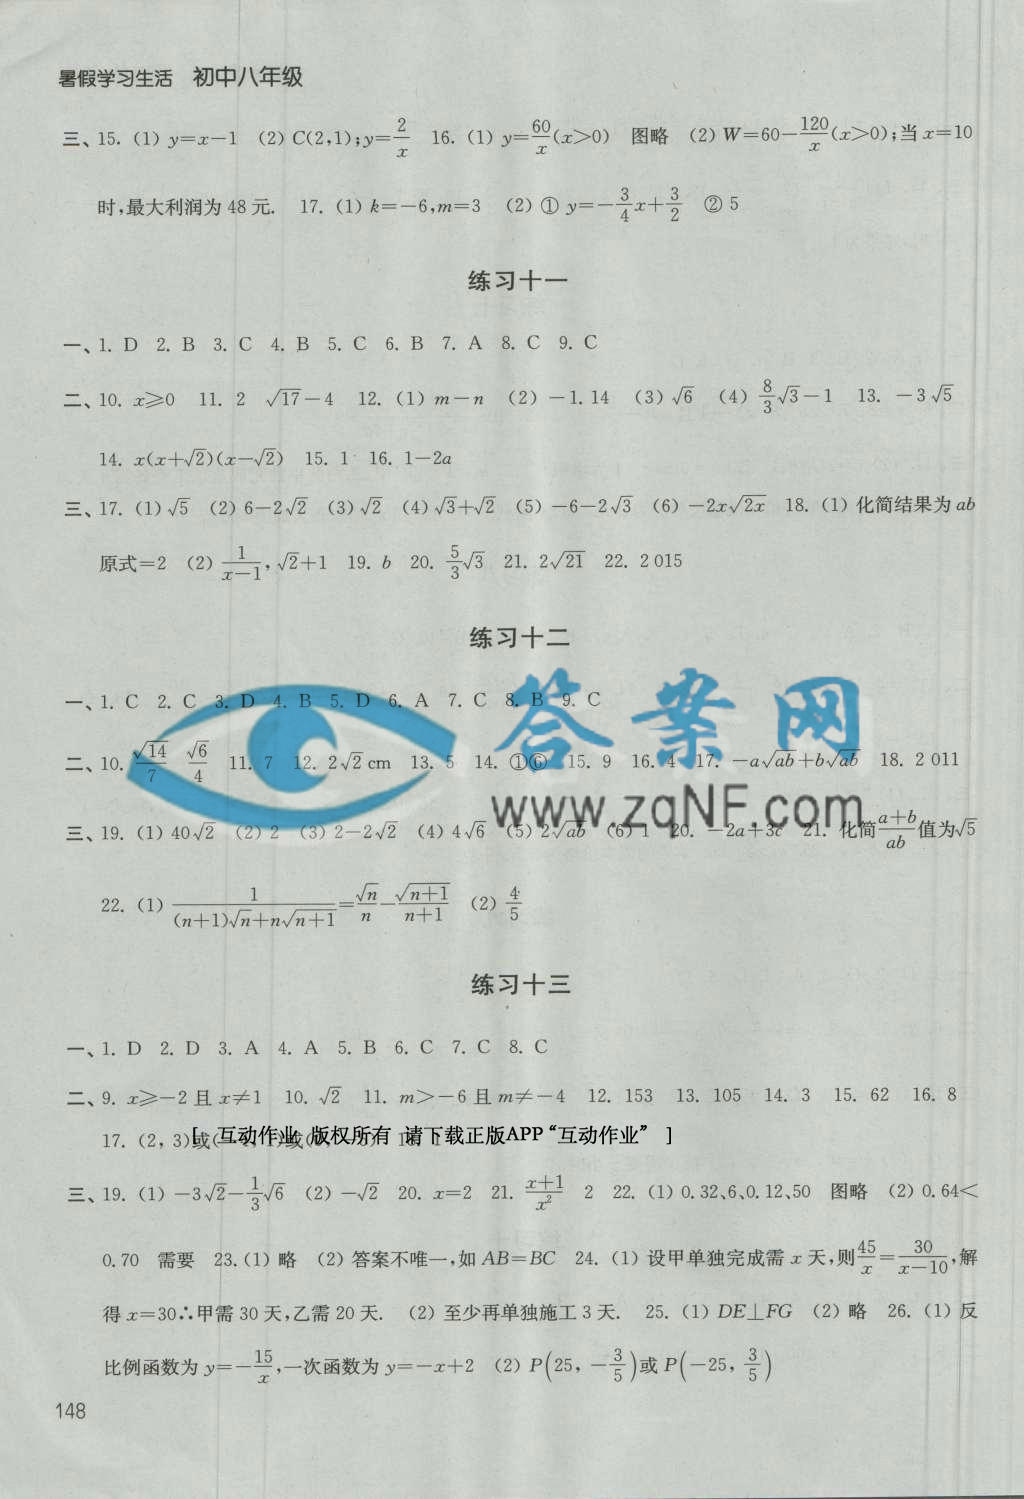 暑假学习生活 初中八年级
三、15. (1) y=x-1 (2) C(2,1);y=2/x 16. (1) y=60/x(x>0) 图略 (2) W=60-120/x(x>0);当 x=10
时,最大利润为 48 元. 17. (1) k=-6,m=3 (2) ① y=-3/4x+3/2 ② 5
练习十一
一、1. D 2. B 3. C 4. B 5. C 6. B 7. A 8. C 9. C
二、10. x⩾0 11. 2 √17-4 12. (1) m-n (2) -1.14 (3) √6 (4) 8/3√3-1 13. -3√5
14. x(x+√2)(x-√2) 15. 1 16. 1-2a
三、17. (1) √5 (2) 6-2√2 (3) √2 (4) √3+√2 (5) -6-2√3 (6) -2x√2x 18. (1) 化简结果为 ab
原式=2 (2) 1/(x-1), √2+1 19. b 20. 5/3√3 21. 2√21 22. 2 015
练习十二
一、1. C 2. C 3. D 4. B 5. D 6. A 7. C 8. B 9. C
答案网
二、10. √14/7 √6/4 11. 7 12. 2√2 cm 13. 5 14. ①⑥ 15. 9 16. 4 17. -a√ab+b√ab 18. 2 011
www.zqNF.com
三、19. (1) 40√2 (2) 2 (3) 2-2√2 (4) 4√6 (5) 2√ab (6) 1 20. -2a+3c 21. 化简(a+b)/ab值为√5
22. (1) 1/((n+1)√n+n√(n+1))=√n/n-√(n+1)/(n+1) (2) 4/5
练习十三
一、1. D 2. D 3. A 4. A 5. B 6. C 7. C 8. C
二、9. x⩾-2 且 x≠1 10. √2 11. m>-6 且 m≠-4 12. 153 13. 105 14. 3 15. 62 16. 8
17. (2, 3)或(
[ 互动作业 版权所有 请下载正版APP“互动作业” ]
三、19. (1) -3√2-1/3√6 (2) -√2 20. x=2 21. (x+1)/x² 2 22. (1) 0.32、6、0.12、50 图略 (2) 0.64<
0.70 需要 23. (1) 略 (2) 答案不唯一,如 AB=BC 24. (1) 设甲单独完成需 x 天,则45/x=30/(x-10),解
得 x=30∴甲需 30 天,乙需 20 天. (2) 至少再单独施工 3 天. 25. (1) DE⊥FG (2) 略 26. (1) 反
比例函数为 y=-15/x,一次函数为 y=-x+2 (2) P(25, -3/5)或 P(-25, 3/5)
148